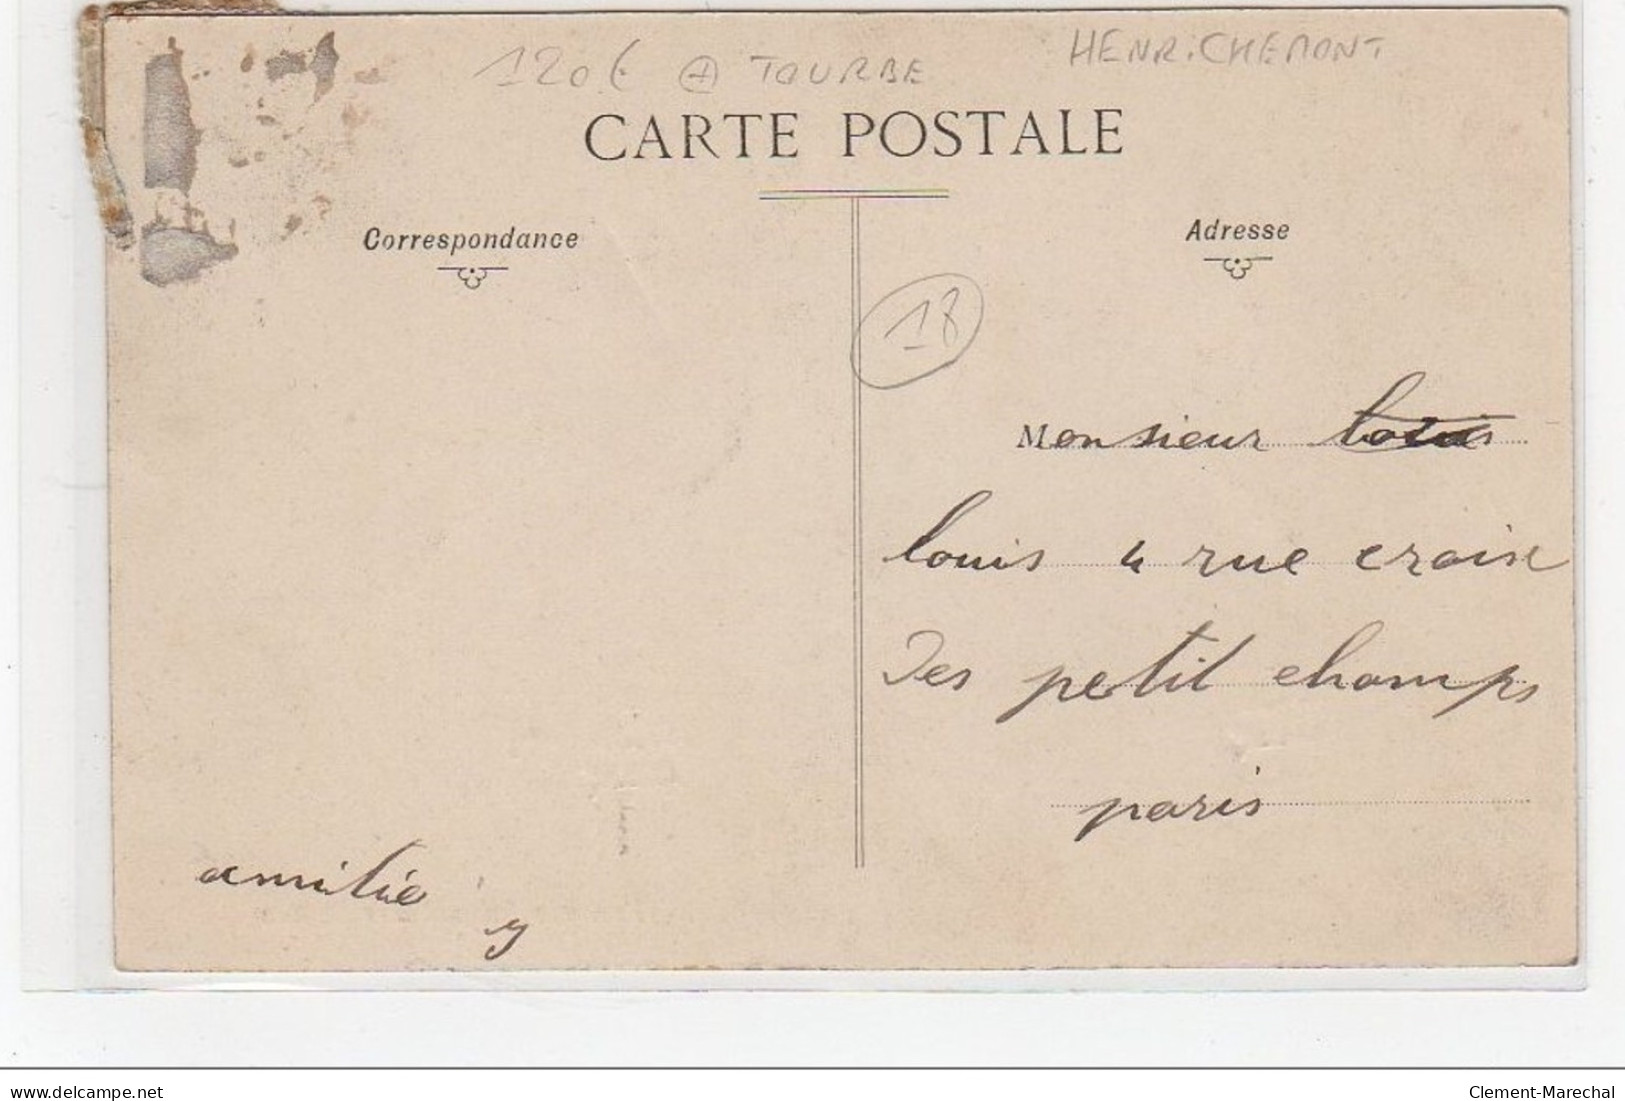 120€ A TOURBE
HENRICHEMONT
CARTE POSTALE
Correspondance
Adresse
18
Monsieur
louis 4 rue croix
Des petit champs
paris
amitié
delcampe.net
Clement-Marechal